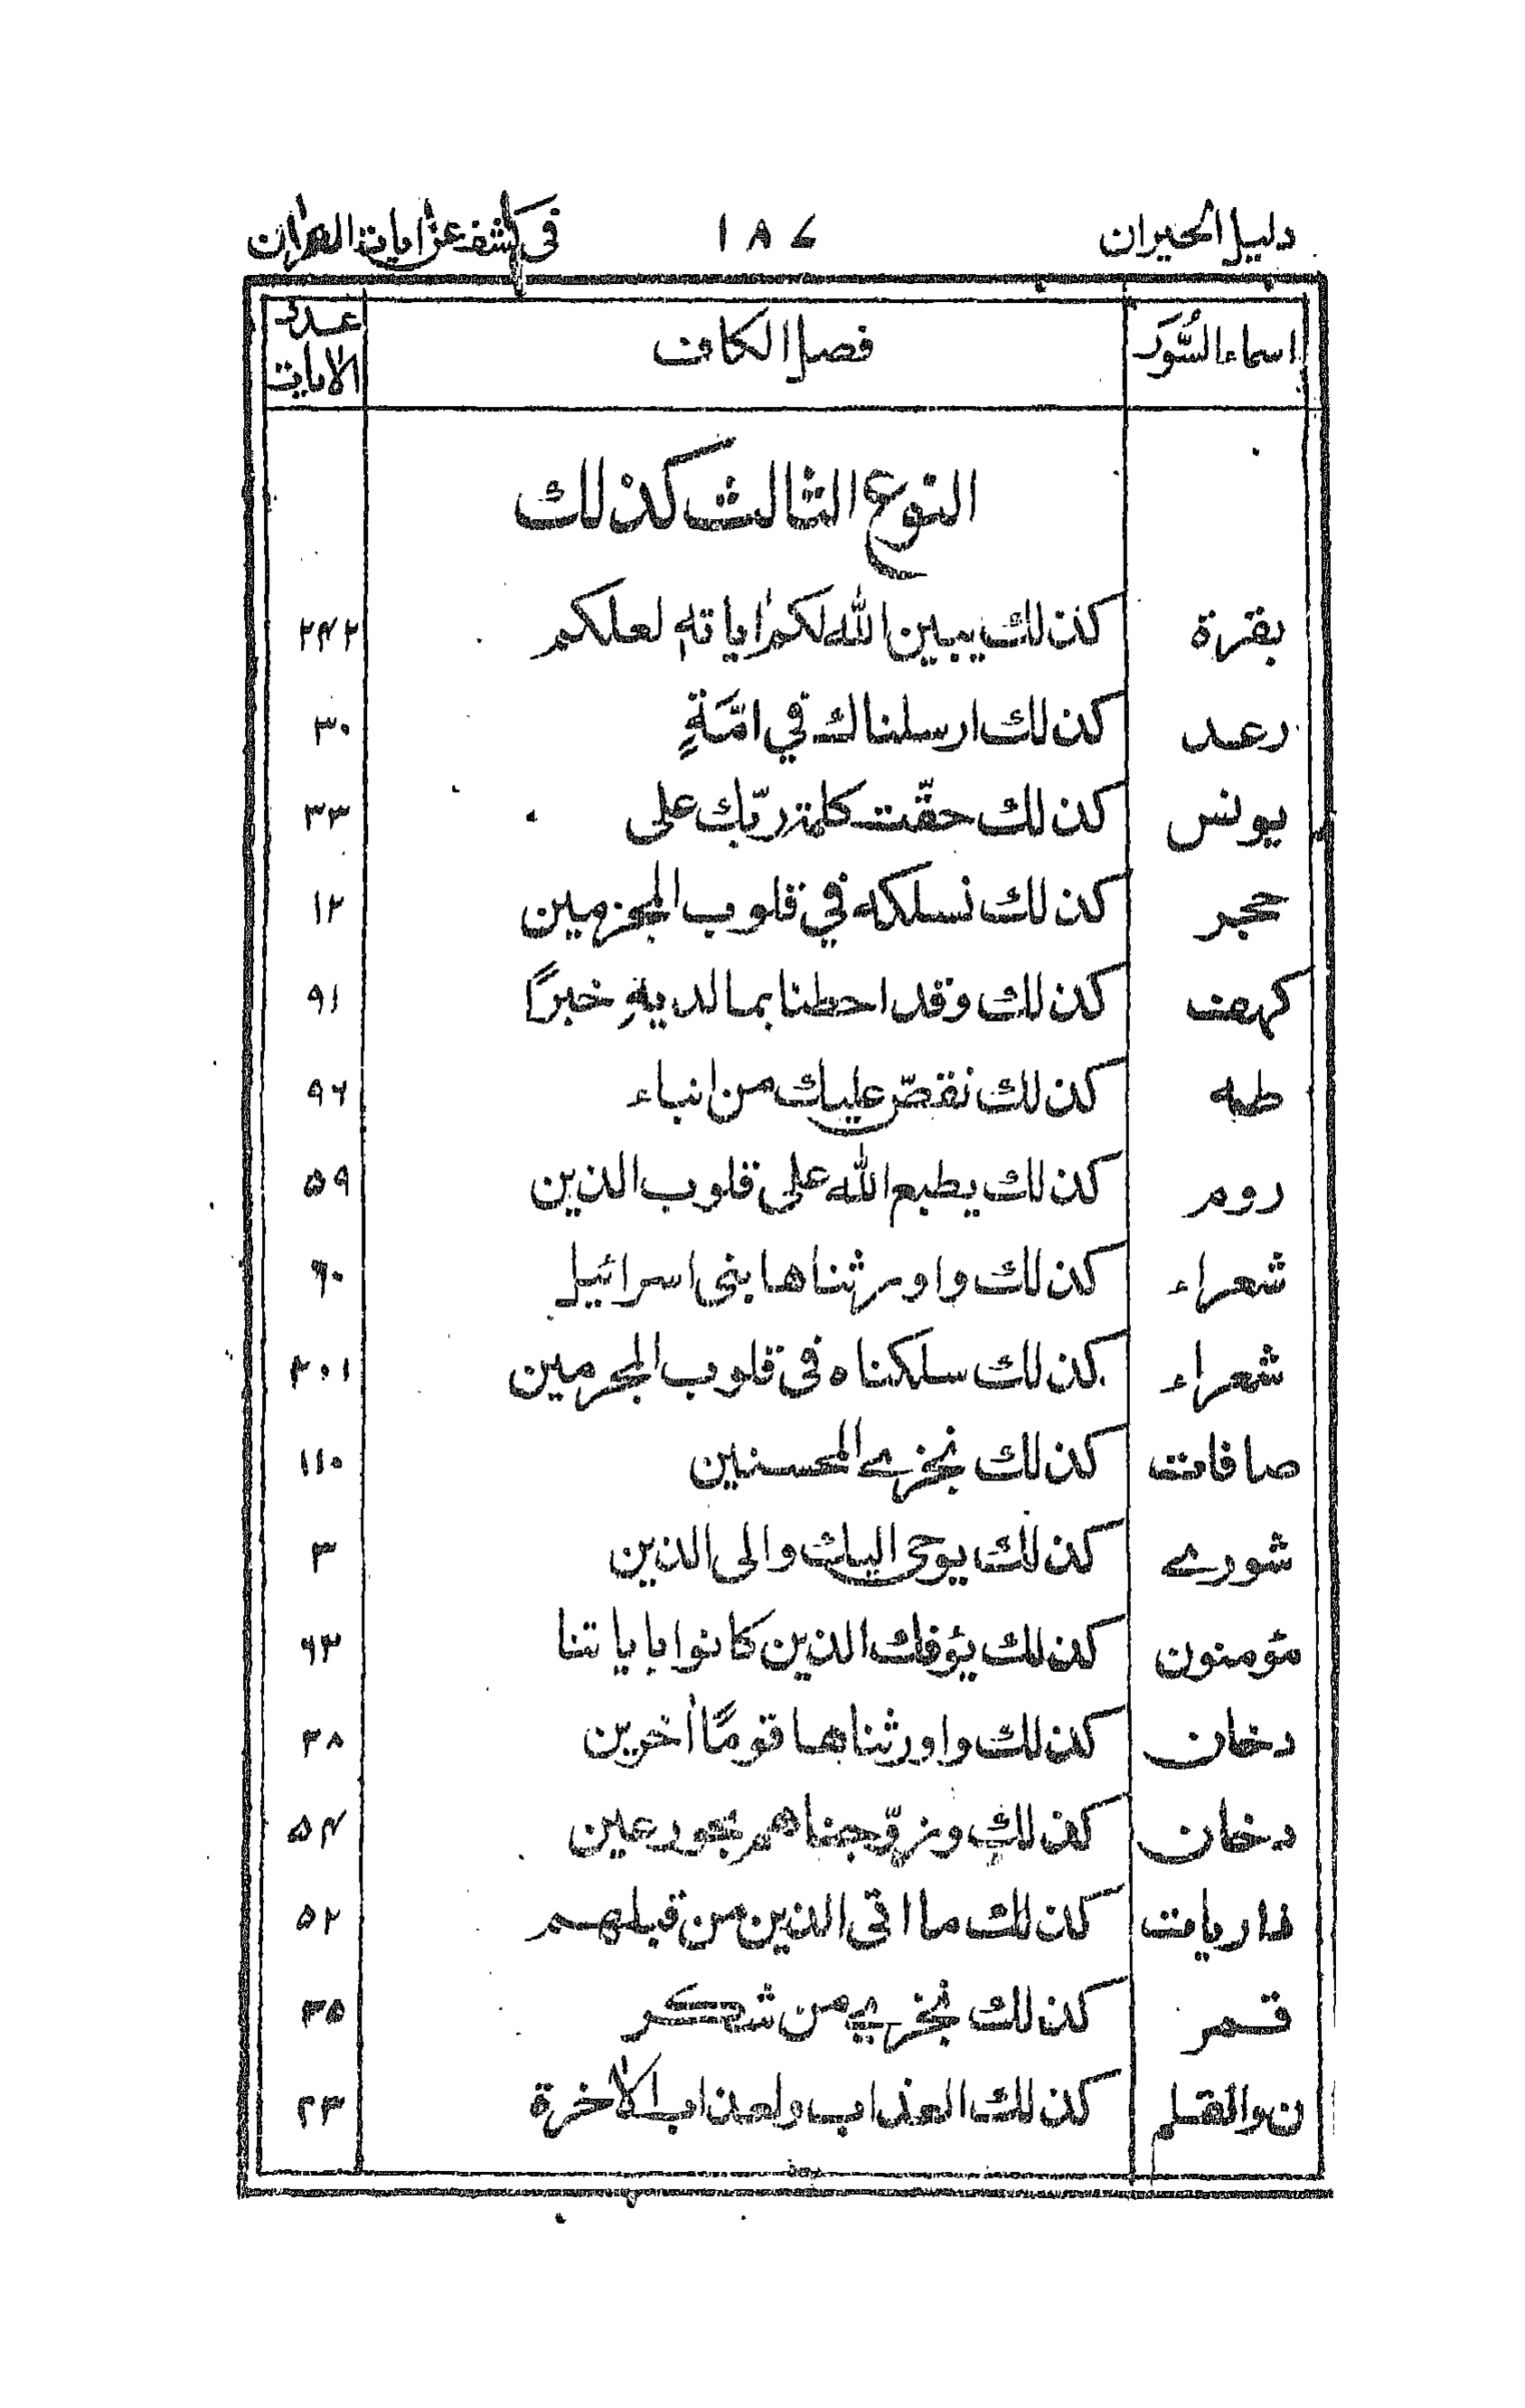 دليل الحيران ١٨٧ في كشف عن ايات القران
اسماء السُّوَر فصل الكاف عدد الايات
النوع الثالث كذلك
بقرة كذلك يبين الله لكم اياته لعلكم ٢٤٢
رعد كذلك ارسلناك في امّةٍ ٣٠
يونس كذلك حقّت كلمة ربّك على ٣٣
حجر كذلك نسلكه في قلوب المجرمين ١٢
كهف كذلك وقد احطنا بما لديهِ خبرًا ٩١
طه كذلك نقصّ عليك من انباء ٩٦
روم كذلك يطبع الله على قلوب الذين ٥٩
شعراء كذلك واورثناها بنى اسرائيل ٦٠
شعراء كذلك سلكناه فى قلوب المجرمين ٢٠١
صافات كذلك نجزے المحسنين ١١٠
شورے كذلك يوحى اليك والى الذين ٣
مؤمنون كذلك يؤفك الذين كانوا باياتنا ٦٣
دخان كذلك واورثناها قومًا اٰخرين ٢٨
دخان كذلكِ وزوّجناهم بحور عين ٥٤
ذاريات كذلك ما اتى الذين من قبلهم ٥٢
قمر كذلك نجزي من شكر ٣٥
ن والقلم كذلك العذاب ولعذاب الاٰخرة ٣٣